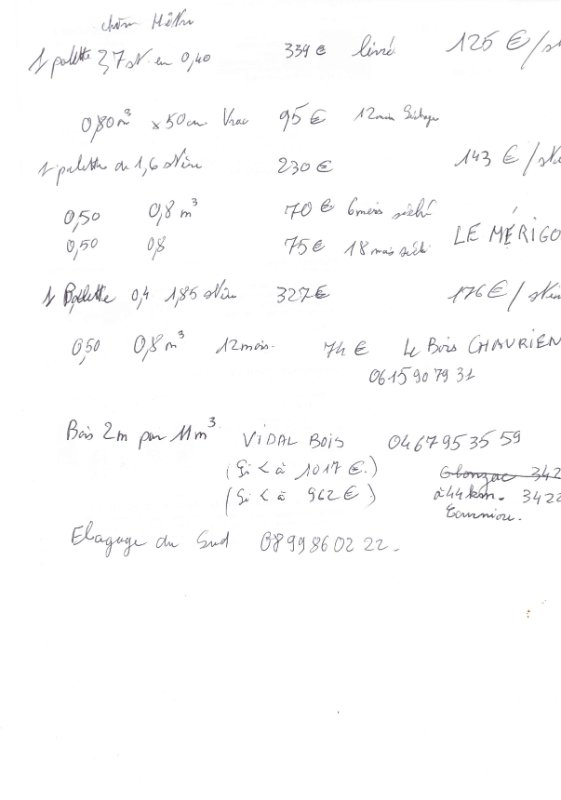 chêne Hêtre
1 palette 2,7 st. en 0,40 339 € livré 125 € / st
0,80 m³ x 50 cm Vrac 95 € 12 mois Séchage
1 palette de 1,6 stère 230 € 143 € / stè
0,50 0,8 m³ 70 € 6 mois séché
0,50 0,8 75 € 18 mois séché LE MÉRIGO
1 Palette 0,4 1,85 stère 327 € 176 € / stè
0,50 0,8 m³ 12 mois. 74 € Le Bois CHAURIEN
06 15 90 79 31
Bois 2m par 11 m³ VIDAL BOIS 04 67 95 35 59
(Si < à 1017 €.) Olonzac 342
(Si < à 962 €) à 44 km. 3422
Elagage du Sud 08 99 86 02 22.